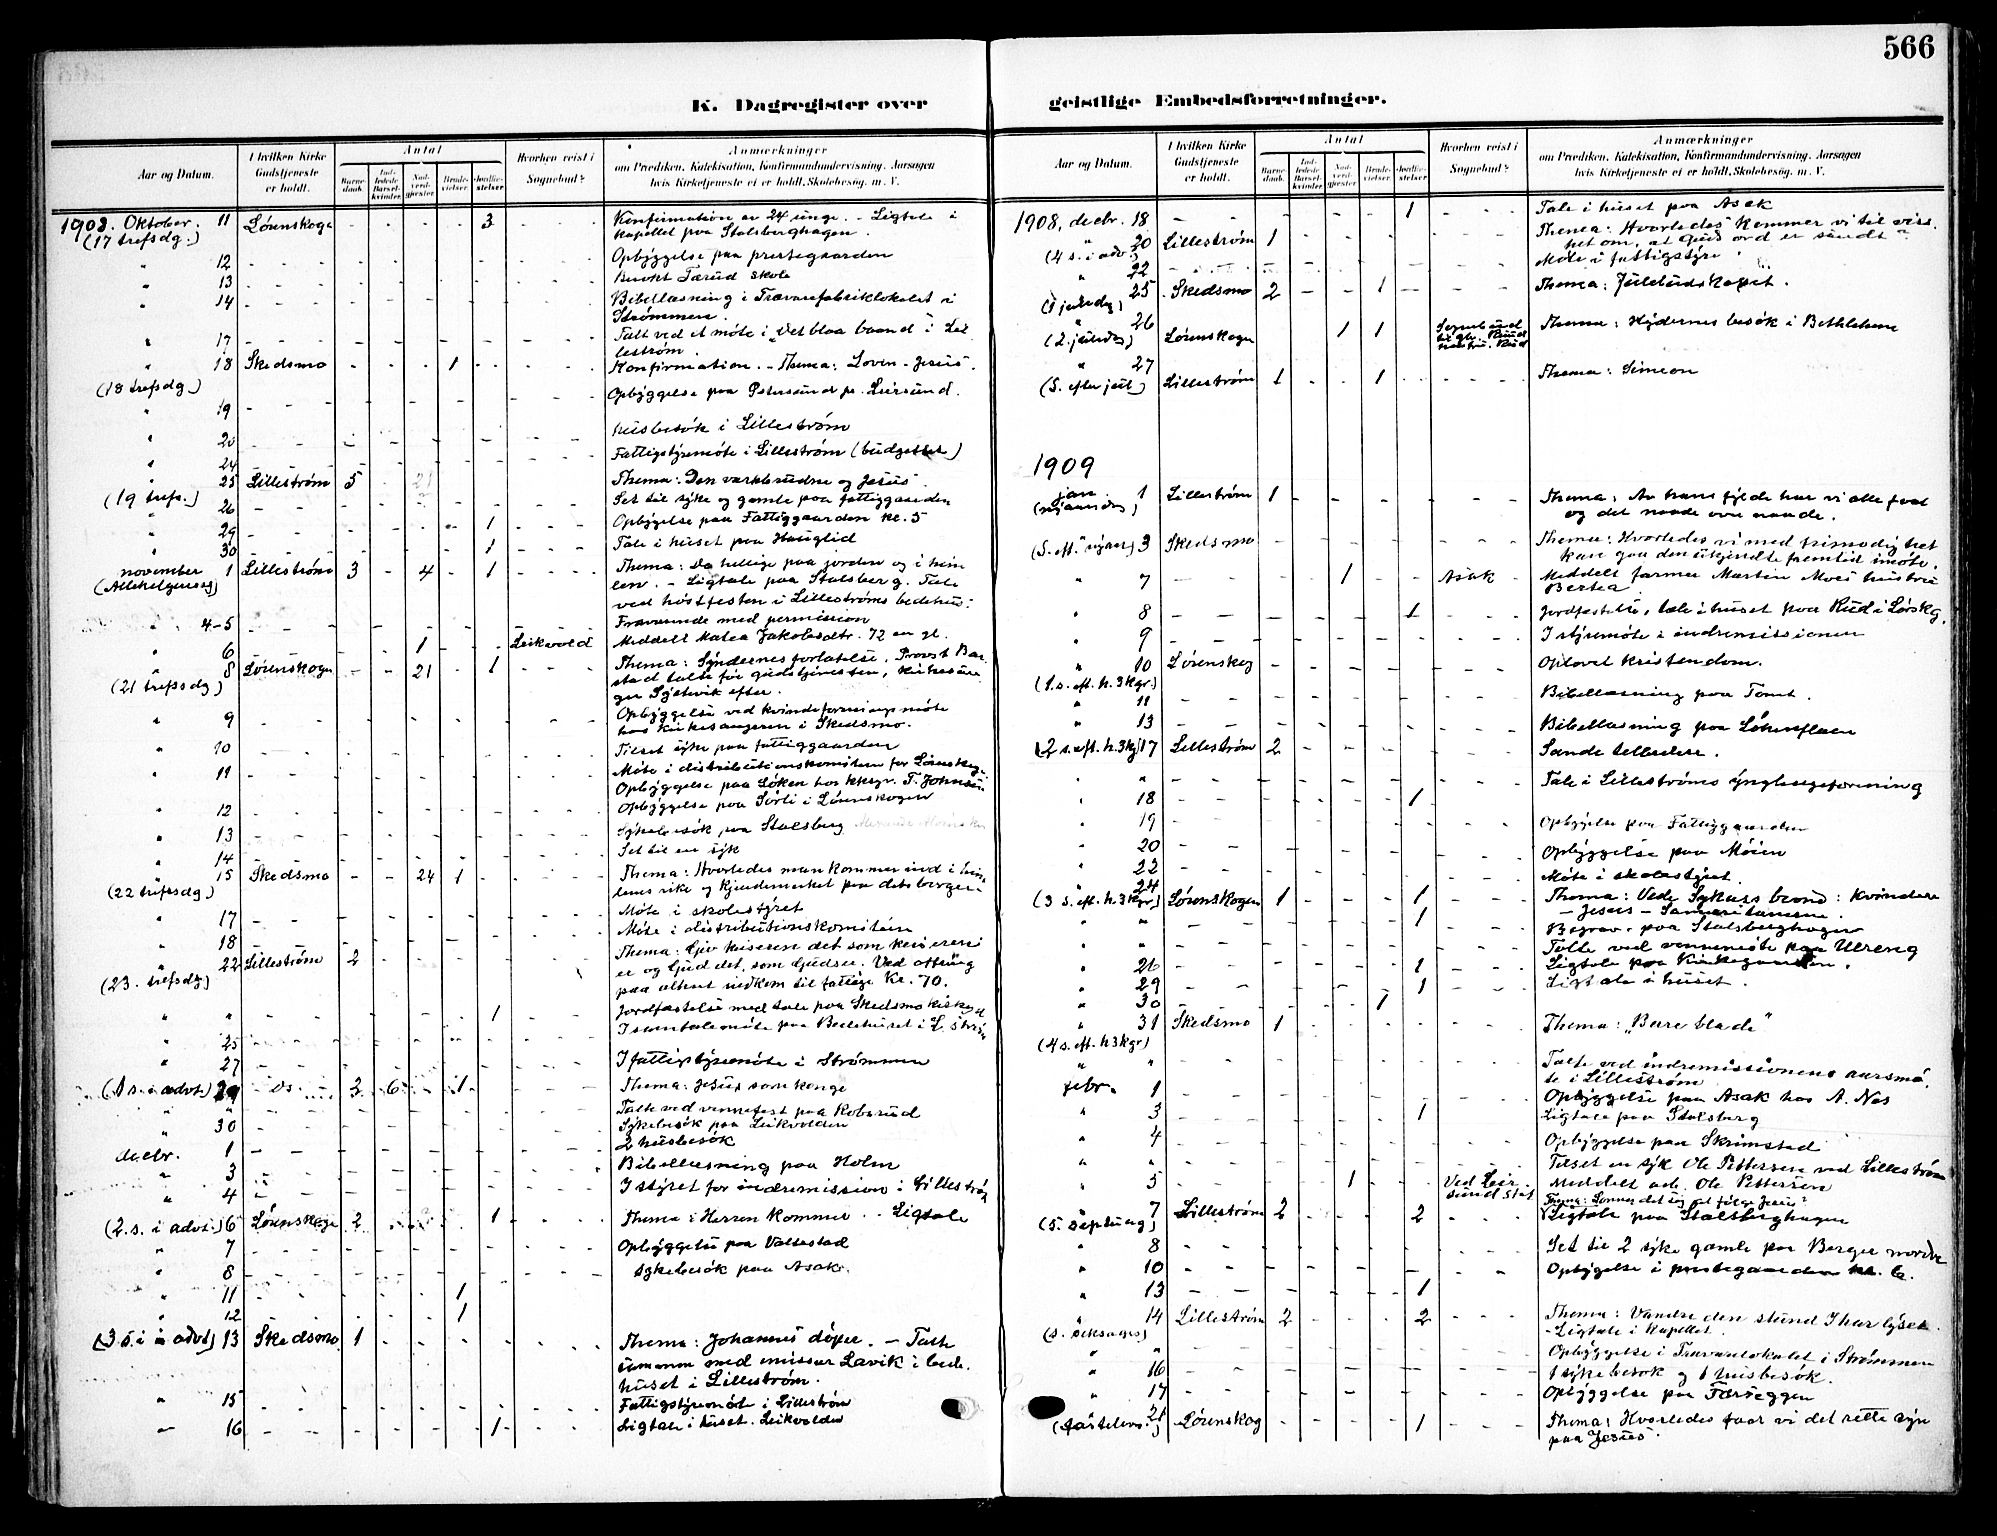 566
K. Dagregister over geistlige Embedsforretninger.
Aar og Datum.
I hvilken Kirke Gudstjeneste er holdt.
Antal
Barnedaab.
Indledede Barselkvinder.
Nadverdgjester
Brudevielser
Jordfæstelser
Hvorhen reist i Sognebud?
Anmærkninger
om Prædiken, Katekisation, Konfirmandundervisning. Aarsagen
hvis Kirketjeneste ei er holdt, Skolebesøg. m. V.
1908. Oktober. 11 Lørenskog - - - - 3 - - - Konfirmation av 24 unge. - Ligtale i
(17 trefsdg.) kapellet paa Stalsberghagen.
" 12 - - Opbyggelse paa prestegaarden
" 13 - - Besøkt Tærud skole
" 14 - - Bibellæsning i Trævarefabriklokalet i
Strømmen.
" 17 - - Talt ved et møte i "Det blaa baand" i Lil
lestrøm.
" 18 Skedsmo - - - 1 - Konfirmation. - Thema: Loven - Jesus.
(18 trefsdg.) Opbyggelse paa Petersund pr. Leirsund.
" 19 - -
" 20 - - Husbesøk i Lillestrøm
" 24 - - Fattigstyremöte i Lillestrøm (budgettet)
" 25 Lillestrøm 5 - 21 Thema: Den værkbrudne og Jesus.
(19 trefs.) 26 - - Set til syke og gamle paa fattiggaarden
" 29 - - 1 Opbygelse paa Fattiggaarden kl. 5
" 30 - - 1 Tale i huset paa Hauglid
november 1 Lillestrøm 3 - 4 - 1 Thema: De hellige paa jorden og i him
(Allehelgensdg) len. - Ligtale paa Stalsberg. Tale
ved høstfesten i Lillestrøms bedehus.
" 4-5 Fraværende med permission
" 6 - - 1 Leikvold Meddelt Matea Jakobsdtr. 72 aar gl.
" 8 Lørenskogen - - 21 - 1 Thema: Syndernes forlatelse. Provst Bar
(21 trefsdg) stad talte før gudstjenesten, kirkesan
ger Sjetvik efter.
" 9 - - Opbyggelse ved kvindeforeningsmøte
hos kirkesangeren i Skedsmo.
" 10 - - Tilset syke paa fattiggaarden
" 11 - - Møte i distributionskomiteen for Lørenskog.
Opbyggelse paa Løken hos kksgr. T. Johnsen
" 12 - - Opbyggelse paa Sørli i Lørenskogen
" 13 - - Sykebesøk paa Stalsberg
" 14 - - Set til en syk
" 15 Skedsmo - - 24 1 Thema: Hvorledes man kommer ind i him
(22 trefsdg) lenes rike og kjendemerket paa dets borgere
" 17 - - Møte i skolestyret
" 18 - - Møte i distributionskomiteen
" 22 Lillestrøm 2 Thema: Giv keiseren det som keiserens
(23. trefsdg) er og Gud det, som Guds er. Ved ofring
paa alteret indkom til fattige Kr. 70.
" " - - 1 Jordfæstelse med tale paa Skedsmo kirkegd
I samtalemøte paa Bedehuset i L.strøm
" 25 - -
" 27 - - I fattigstyremøte i Strømmen
(1 s. i advt.) 29 - Ds. - 3 6 - 1 Thema: Jesus som konge
" " - - Talte ved vennefest paa Robsrud
" 30 - - Sykebesøk paa Leikvolden
decbr. 1 - - 2 husbesøk
" 3 - - Bibellæsning paa Holm
" 4 - - I styret for indremission i Lillestrøm
(2. s. i advt.) 6 Lørenskoge 2 - 1 Thema: Herren kommer. - Ligtale
" 7 - - Opbyggelse paa Valstad
" 8 - - Sykebesøk paa Asak.
" 11 - - 1
" 12 - - 1
(3 s. i advt) 13 Skedsmo 1 Thema: Johannes døper. - Talte
sammen med missær Lavik i bede-
huset i Lillestrøm.
" 15 - - Fattigstyremøte i Lillestrøm
" 16 - - 1 Ligtale i huset. Leikvolden
Aar og Datum.
I hvilken Kirke Gudstjeneste er holdt.
Antal
Barnedaab.
Indledede Barselkvinder
Nadverdgjester
Brudevielser
Jordfæstelser
Hvorhen reist i Sognebud?
Anmærkninger
om Prædiken, Katekisation, Konfirmandundervisning. Aarsagen
hvis Kirketjeneste ei er holdt, Skolebesøg. m. V.
1908, decbr. 18 - - 1 Tale i huset paa Asak
" 20 Lillestrøm 1 Thema: Hvorledes kommer vi til viss
(4 s. i adv.) het om, at Guds ord er sandt?
" 22 - - Møte i fattigstyre.
" 25 Skedsmo 2 - - 1 Thema: Julebudskapet.
(1 juledg)
" 26 Lørenskogen 1 1 Sognebud Thema: Hyrdernes besøk i Bethlehem
(2. juledag)
" 27
(S. efter jul) Lillestrøm 1 - - 1 Thema: Simeon
1909
jan. 1 Lillestrøm 1 Thema: Av hans fylde har vi alle faat
(nyaarsdag) og det naade over naade.
(S. eft. nyaar) 3 Skedsmo Thema: Hvorledes vi med frimodighet
kan gaa den ukjendte fremtid imøte.
" 7 1 Asak Meddelt farmer Martin Moes hustru
Bertea
" 8 - - 1 Jordfæstelse, tale i huset paa Rud i Lørskg.
" 9 - - I styremøte i indremissionen
" 10 Lørenskog Oplevet kristendom.
(1. s. eft. h. 3 kgr.)
" 11 - - Bibellæsning paa Tomt.
" 13 - - Bibellæsning paa Løkenflaen
(2 s. eft. h. 3 kg) 17 Lillestrøm 2 Sande tilbedere.
" " - - Tale i Lillestrøms ynglingeforening
" 18 - - 1
" 19 - - Opbygelse paa Fattiggaarden
" 20 - - Opbyggelse paa Moien
" 22 - - Møte i skolestyret.
" 24 Lørenskogen 1 - 1 Thema: Ved Sykars brønd: Kvinden
(3 s. eft. h. 3 kgr) - Jesus - Samaritanerne.
" " - - 1 Begrav. paa Stalsberghagen
" " - - Talte ved vennemøte paa Ulreng
" 26 - - 1 Ligtale paa Kirkegaarden.
" 29 - - 1 Ligtale i huset.
" 30 - - 1
" 31 Skedsmo 1 Thema: "Bare blade"
(4 s. eft. h 3 kgr)
" " Talte ved indremissionens aarsmø
te i Lillestrøm
febr. 1 - - Opbyggelse paa Asak hos A. Nes
" 3 - - 1 Ligtale paa Stalsberg
" 4 - - Opbyggelse paa Skrimstad
" " - - Tilset en syk Ole Pettersen ved Lillestrøm
" 5 - - 1 Ved Leirsund st Meddelt arb. Ole Pettersen
" 7 Lillestrøm 2 - 2 Thema: Lønner det sig at følge Jesus?
(S. septuag) Ligtale paa Stalsberghagen
" 8 - - Set til 2 syke gamle paa Berger nordre
" 10 - - Opbygelse i prestegaarden kl. 6.
" 13 - - 1
" 14 Lillestrøm 2 - 2 Thema: Vandre den stund I har lyset.
(s. seksages) - Ligtale i kapellet.
" " Opbyggelse i Trævarelokalet i Strømmen
" 16 - - 1 sykebesøk og 1 husbesøk.
" 17 - - Opbyggelse paa Farseggen
" 21 Lørenskog - 1 Thema: Hvorledes faar vi det rette syn
(fastelavns.) paa Jesus.